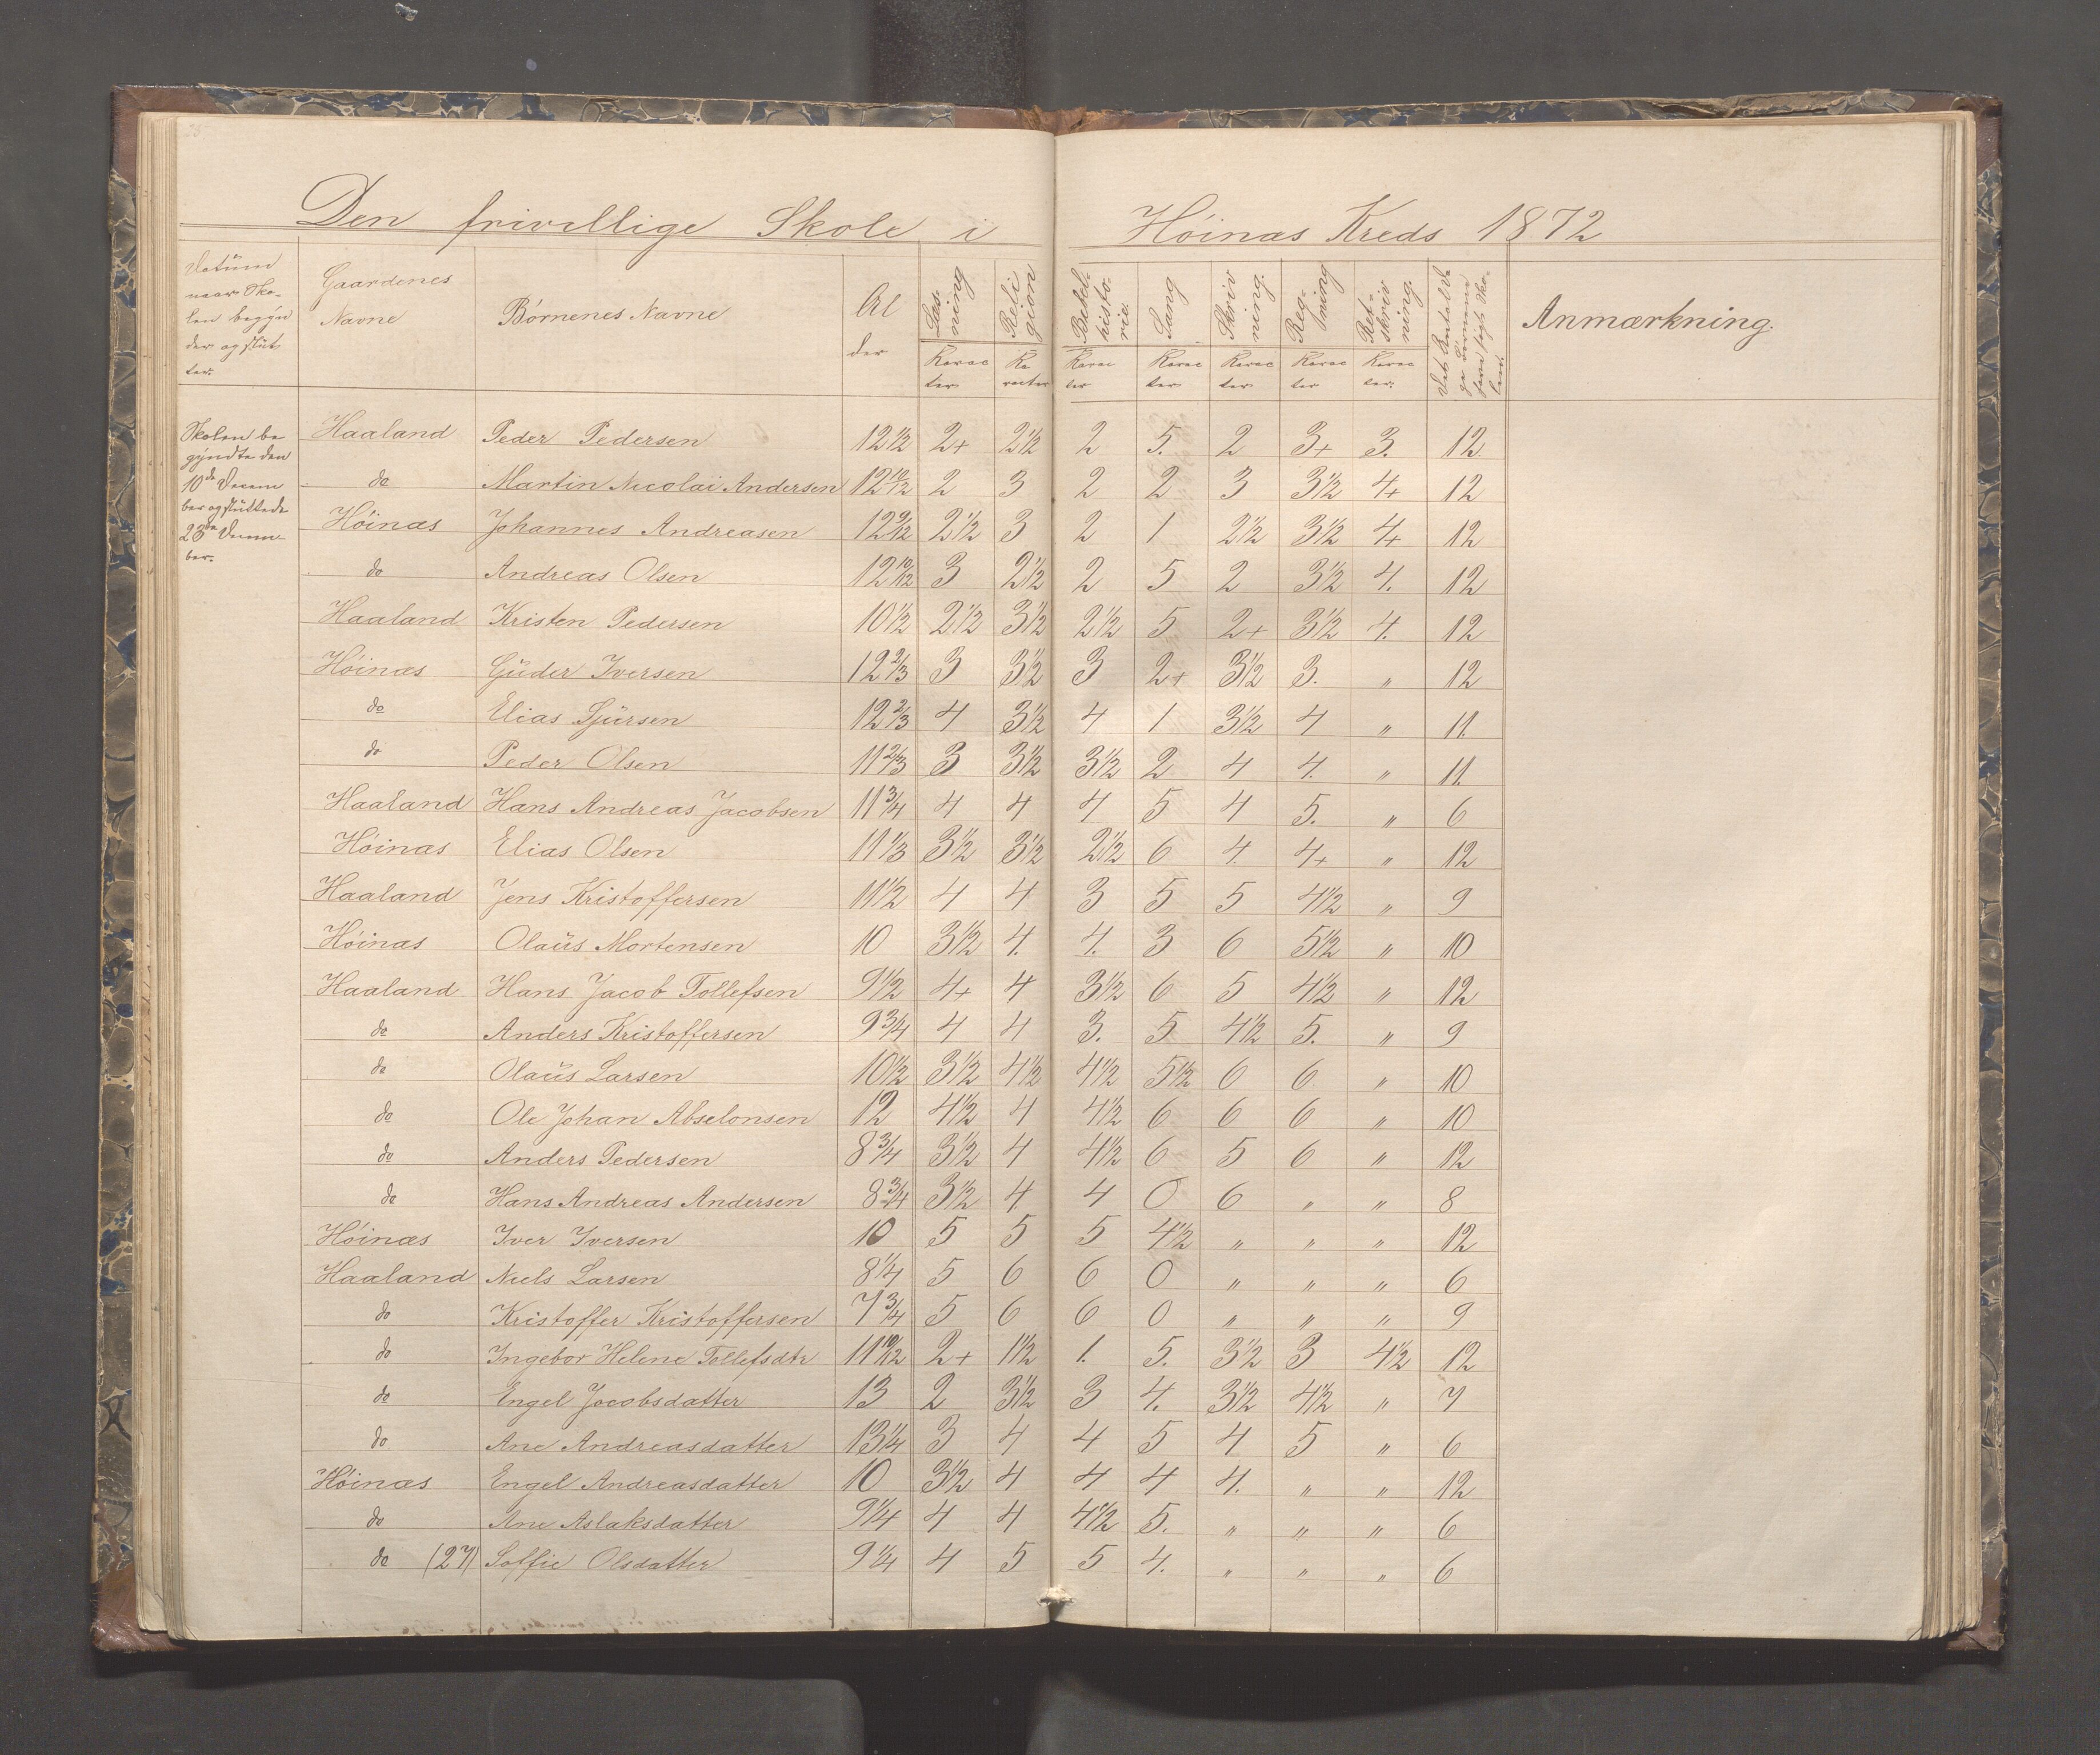 Den frivillige Skole i Hóinæs Kreds 1872
Datüm naar Sko-
len begyn
der og slüt
ter.
Gaardenes
Navne
Börnenes Navne
Al
der
Læs-
ning
Reli
gion
Bibel-
histo-
rie.
Sang
Skriv
ning.
Reg-
ning
Ret-
skriv
ning.
Det Antal Da
ge Börnene
have søgt Sko-
len.
Anmærkning.
Karac
ter
Ka
racter
Karac
ter
Karac
ter
Karac
ter.
Karac
ter
Karac
ter.
Skolen be
gyndte den
10de Decem
ber og slüttede
23de Decem-
ber.
Haaland Peder Pedersen 12 1/2 2+ 2 1/2 2 5. 2 3+ 3. 12.
do Martin Nicolai Andersen 12 10/12 2 3 2 2 3 3 1/2 4+ 12
Hóinæs Johannes Andreasen 12 9/12 2 1/2 3 2 1 2 1/2 3 1/2 4+ 12
do Andreas Olsen 12 10/12 3 2 1/2 2 5 2 3 1/2 4. 12
Haaland Kristen Pedersen 10 1/2 2 1/2 3 1/2 2 1/2 5 2+ 3 1/2 4. 12
Hóinæs Güder Iversen 12 2/3 3 3 1/2 3 2+ 3 1/2 3. " 12
do Elias Sjürsen 12 2/3 4 3 1/2 4 1 3 1/2 4 " 11.
do Peder Olsen 11 2/3 3 3 1/2 3 1/2 2 4 4. " 11.
Haaland Hans Andreas Jacobsen 11 3/4 4 4 4 5 4 5. " 6
Hóinæs Elias Olsen 11 1/3 3 1/2 3 1/2 2 1/2 6 4. 4+ " 12
Haaland Jens Kristoffersen 11 1/2 4 4 3 5 5 4 1/2 " 9
Hóinæs Olaüs Mortensen 10 3 1/2 4. 4. 3 6 5 1/2 " 10
Haaland Hans Jacob Tollefsen 9 1/2 4+ 4 3 1/2 6 5 4 1/2 " 12
do Anders Kristoffersen 9 3/4 4 4 3. 5 4 1/2 5. " 9
do Olaüs Larsen 10 1/2 3 1/2 4 1/2 4 1/2 5 1/2 6 6 " 10
do Ole Johan Abselonsen 12 4 1/2 4 4 1/2 6 6 6 " 10
do Anders Pedersen 8 3/4 3 1/2 4 4 1/2 6 5 6 " 12
do Hans Andreas Andersen 8 3/4 3 1/2 4. 4 0 6 " " 8
Hóinæs Iver Iversen 10 5 5 5 4 1/2 " " " 12
Haaland Niels Larsen 8 1/4 5 6 6 0 " " " 6
do Kristoffer Kristoffersen 7 3/4 5 6 6 0 " " " 9
do Ingebor Helene Tollefsdtr 11 10/12 2+ 1 1/2 1. 5. 3 1/2 3 4 1/2 12
do Engel Jacobsdatter 13 2 3 1/2 3 4. 3 1/2 4 1/2 " 7
do Ane Andreasdatter 13 1/4 3 4 4 5 4 5 " 6
Hóinæs Engel Andreasdatter 10 3 1/2 4 4 4 4. " " 12
do Ane Aslaksdatter 9 1/4 4 4 4 1/2 5. " " " 6
do (27) Soffie Olsdatter 9 1/4 4 5 5 4. " " " 6